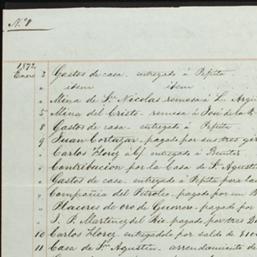 N.º 8
1872
Enero 2 Gastos de casa entregado á Pepita
" idem idem
" Mina de Sn Nicolas remesa á L.
5 Mina del Cristo remesa á José de la
8 Gastos de casa entregado á Pepita
9 Juan Cortazar, pagado por su tres
" Carlos Florez á
" Contribucion por la Casa de Sn Agustin
" Gastos de casa entregado á Pepita para la
" Compañia del Petroleo pagado por un
" Placeres de oro de Guerrero pagado por
" J. P. Martinez del Rio pagado por tres
10 Carlos Florez entregadole por saldo de $10
11 Casa de Sn Agustin arrendamiento de